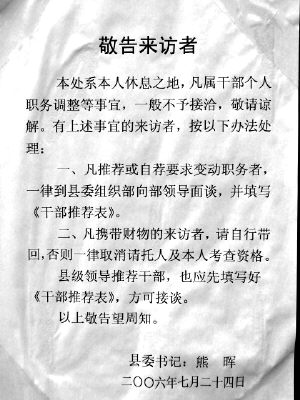 敬告来访者
本处系本人休息之地，凡属干部个人
职务调整等事宜，一般不予接洽，敬请谅
解。有上述事宜的来访者，按以下办法处
理：
一、凡推荐或自荐要求变动职务者，
一律到县委组织部向部领导面谈，并填写
《干部推荐表》。
二、凡携带财物的来访者，请自行带
回，否则一律取消请托人及本人考查资格。
县级领导推荐干部，也应先填写好
《干部推荐表》，方可接谈。
以上敬告望周知。
县委书记：熊　晖
二〇〇六年七月二十四日